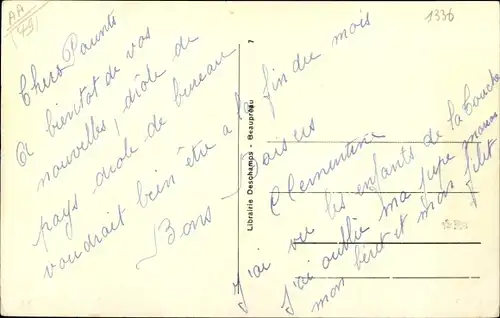 AA
(49)
1336
Chers Parents
A bientot de vos
nouvelles, drôle de
pays drole de bureau
voudrait bien être a la fin du mois
Bons Baisers
Clementine
J'ai vu les enfants de la Couche
J'ai oublié ma jupe marron
mon béret et mon filet
Librairie Deschamps - Beaupréau
7